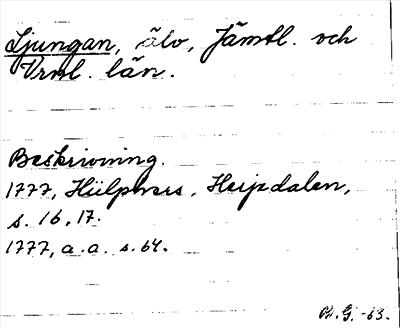 Ljungan, älv, Jämtl. och
Vrnl. län.
Beskrivning.
1777, Hülphers, Herjedalen,
s. 16, 17.
1777, a.a. s. 64.
G. -63.